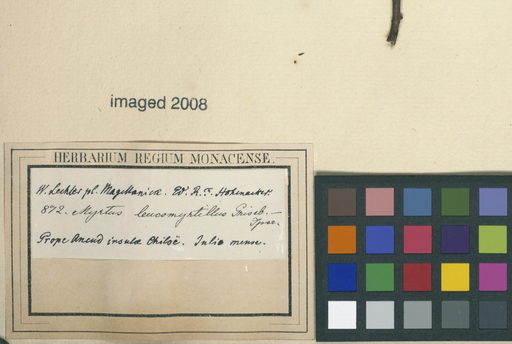 imaged 2008
HERBARIUM REGIUM MONACENSE.
W. Lechler pl. Magellanicæ. Ed. R. F. Hohenacker.
872. Myrtus leucomyrtillus Griseb. —
Prope Ancud insulæ Chiloë. Julio mense.